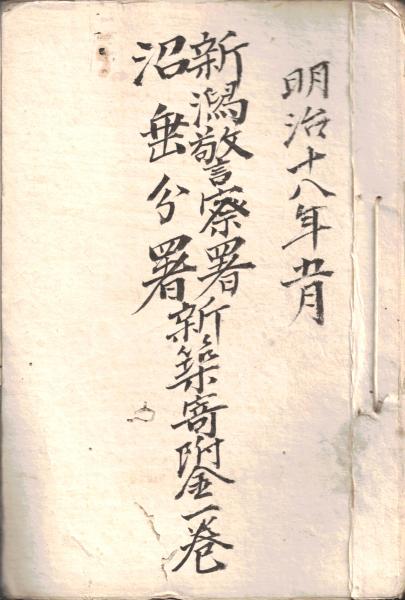 明治十八年五月
新潟警察署
沼垂分署
新築寄附金一巻